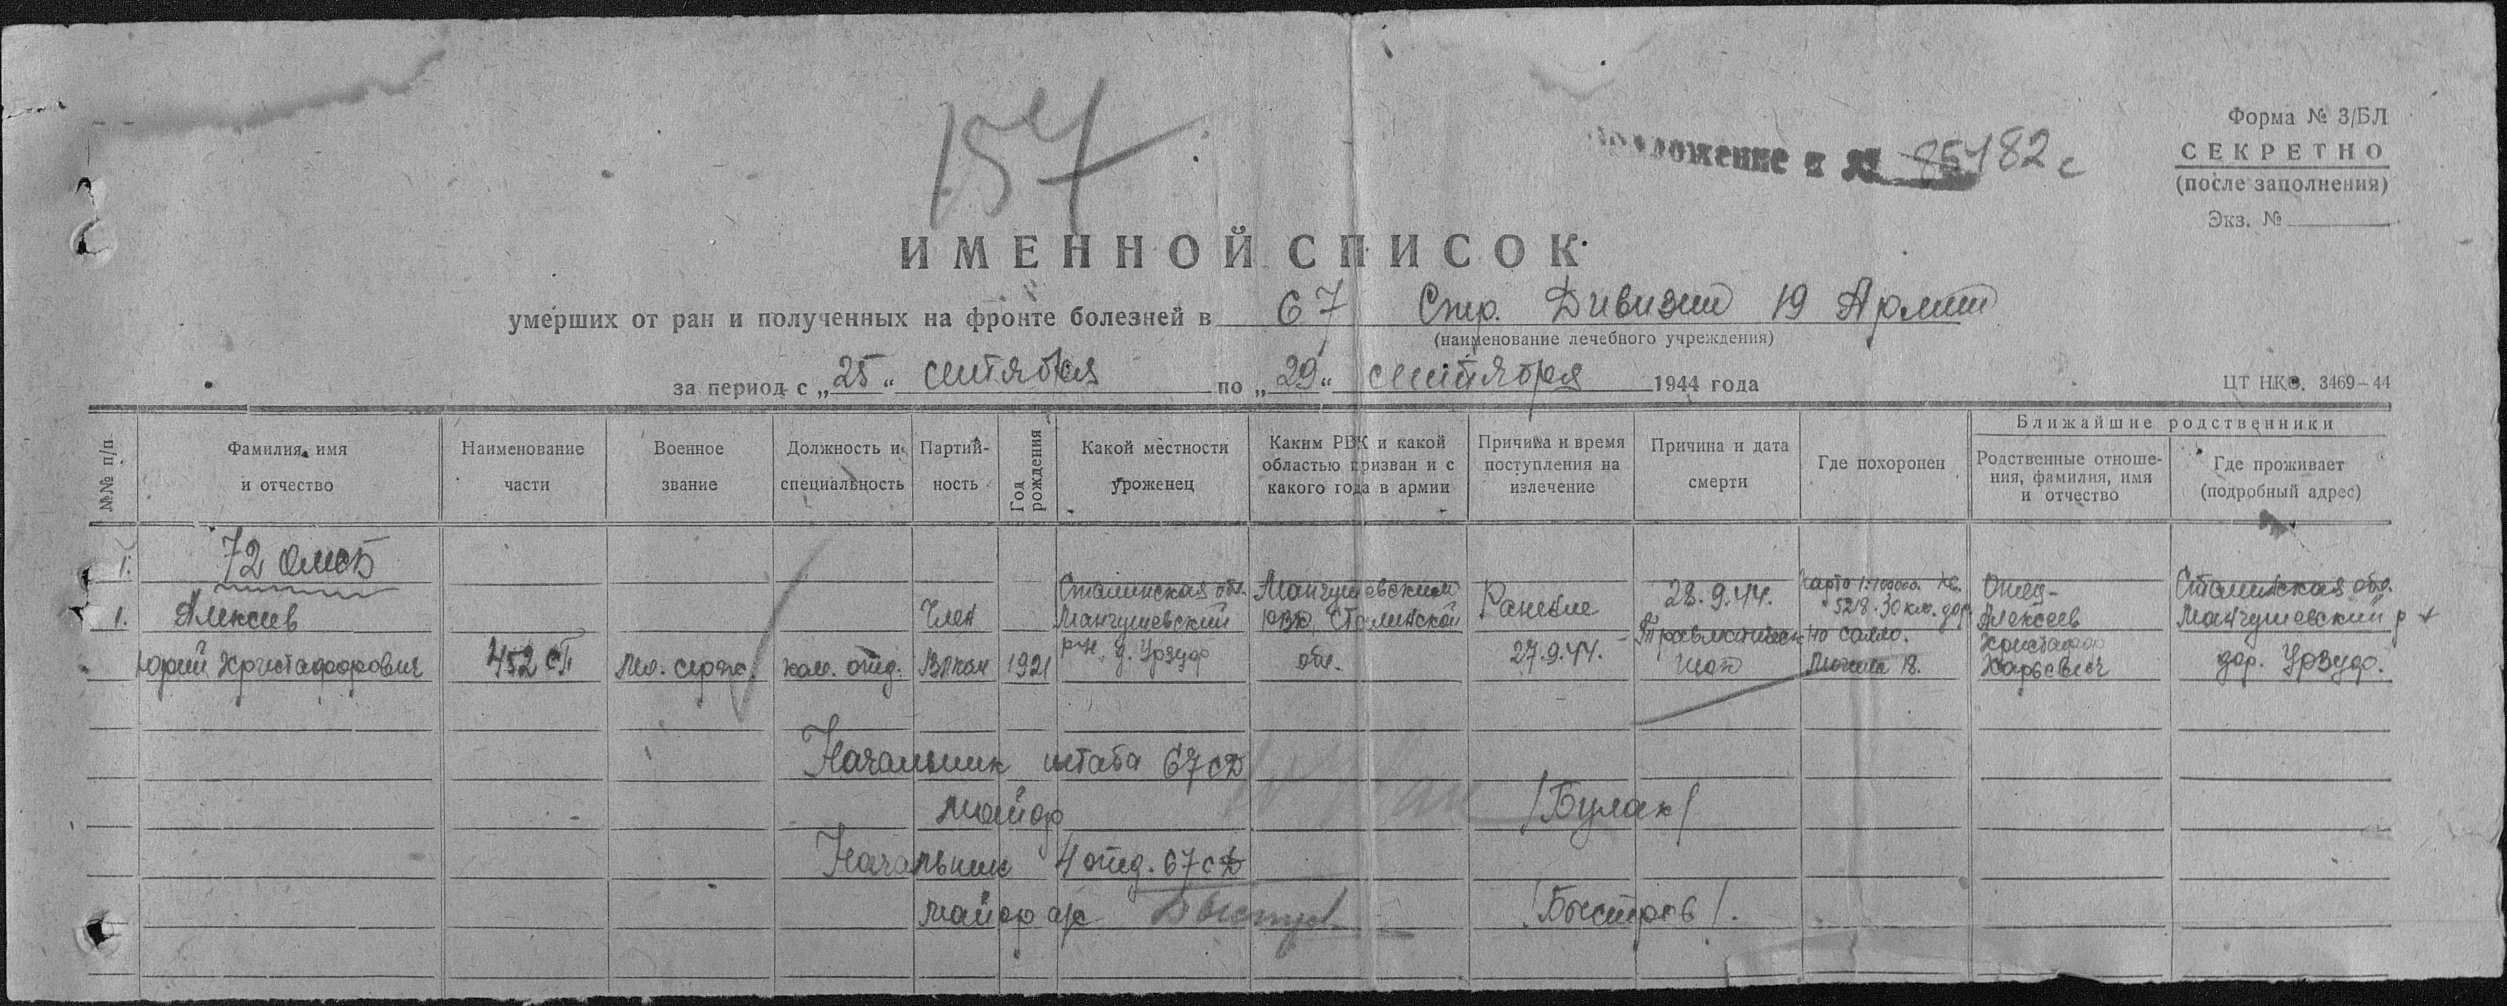 157
Форма № 3/БЛ
Приложение к № 85182с
СЕКРЕТНО
(после заполнения)
Экз. №
ИМЕННОЙ СПИСОК
умерших от ран и полученных на фронте болезней в 67 Стр. Дивизии 19 Армии
(наименование лечебного учреждения)
за период с „25“ сентября по „29“ сентября 1944 года
ЦТ НКО. 3469–44
№№ п/п
Фамилия, имя
и отчество
Наименование
части
Военное
звание
Должность и
специальность
Партий-
ность
Год
рождения
Какой местности
уроженец
Каким РВК и какой
областью призван и с
какого года в армии
Причина и время
поступления на
излечение
Причина и дата
смерти
Где похоронен
Ближайшие родственники
Родственные отноше-
ния, фамилия, имя
и отчество
Где проживает
(подробный адрес)
1. 72 омсб
1. Алексеев
Юрий Христафорович
452 сп
мл. серж.
ком. отд.
Член
ВЛКСМ
1921
Сталинская обл.
Мангушевский
р-н, д. Урзуф
Мангушевским
РВК, Сталинской
обл.
Ранение
27.9.44.
28.9.44.
Травматический
шок
Карта 1:100000.
5218. 30 клм. дор.
Могила 18.
Отец-
Алексеев
Христафор
Сталинская обл.
Мангушевский р
дер. Урзуф.
Начальник штаба 67 сд
майор
/Булак/
Начальник 4 отд. 67 сд
майор а/с
/Быстров/.